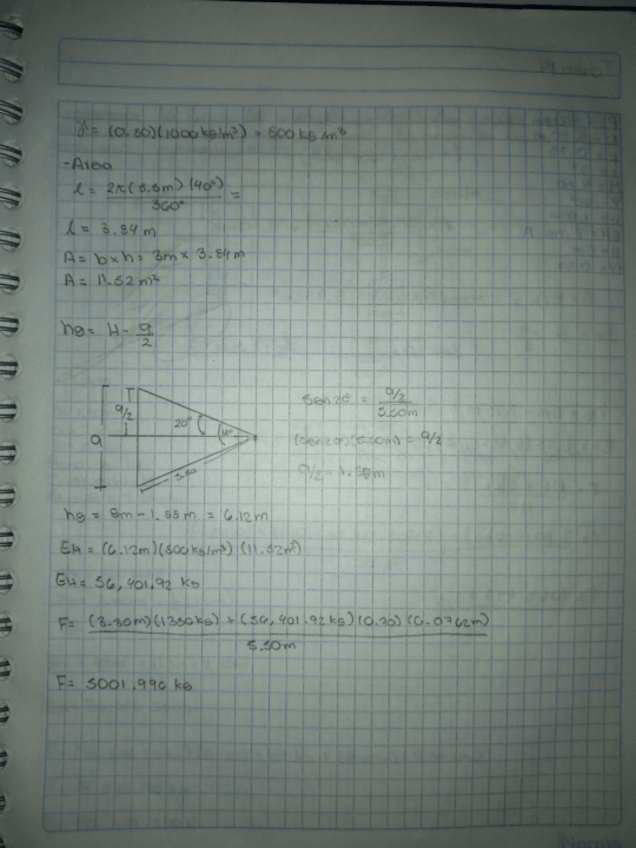 γ = (0.80)(1000 kg/m³) = 800 kg/m³
-Area
l = 2π(5.5m)(40°) =
360°
l = 3.84 m
A = b x h = 3m x 3.84m
A = 11.52 m²
hg = H - a/2
a/2
20°
40°
a
5.50
sen20 = a/2
5.50m
(sen20)(5.50m) = a/2
a/2 = 1.88m
hg = 8m - 1.88m = 6.12m
EH = (6.12m)(800kg/m³)(11.52m²)
EH = 56,401.92 kg
F = (3.30m)(1350kg) + (56,401.92kg)(0.70)(0.0762m)
5.50m
F = 5001.996 kg